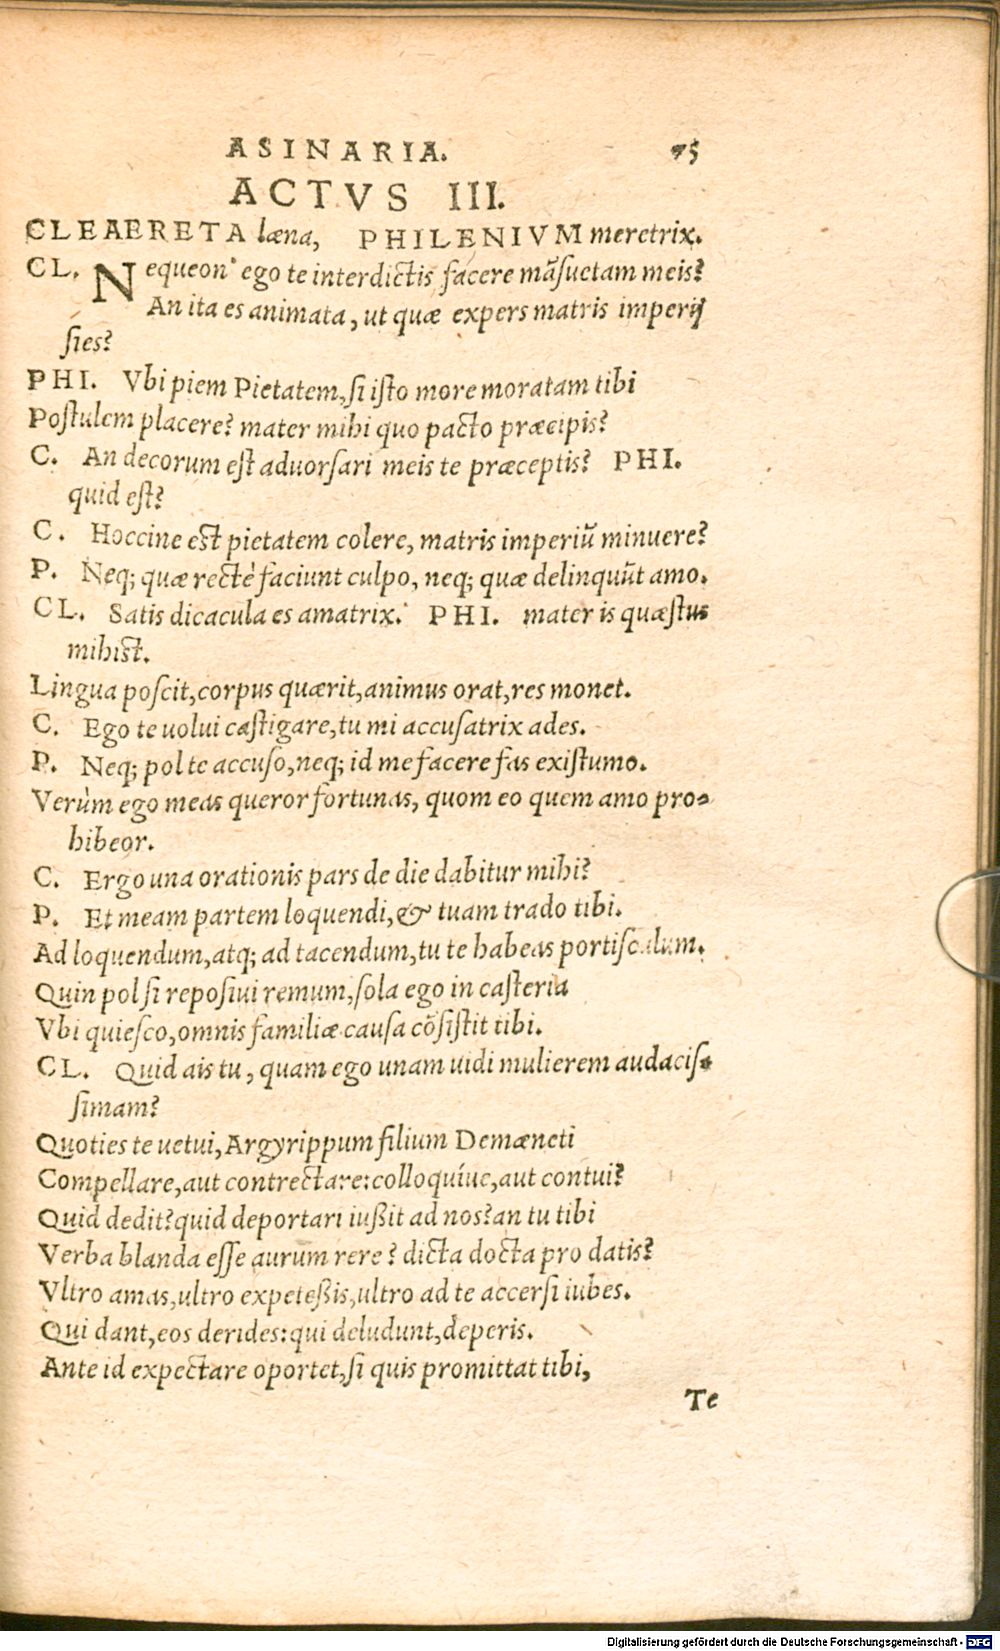 ASINARIA. 75
ACTVS III.
CLEAERETA læna, PHILENIVM meretrix.
CL. Nequeon' ego te interdictis facere mãſuetam meis?
An ita es animata, ut quæ expers matris imperij
ſies?
PHI. Vbi piem Pietatem, ſi iſto more moratam tibi
Poſtulem placere? mater mihi quo pacto præcipis?
C. An decorum eſt aduorſari meis te præceptis? PHI.
quid eſt?
C. Hoccine eſt pietatem colere, matris imperiũ minuere?
P. Neq; quæ rectè faciunt culpo, neq; quæ delinquũt amo.
CL. Satis dicacula es amatrix. PHI. mater is quæſtus
mihiſt.
Lingua poſcit, corpus quærit, animus orat, res monet.
C. Ego te uolui caſtigare, tu mi accuſatrix ades.
P. Neq; pol te accuſo, neq; id me facere fas exiſtumo.
Verùm ego meas queror fortunas, quom eo quem amo pro-
hibeor.
C. Ergo una orationis pars de die dabitur mihi?
P. Et meam partem loquendi, & tuam trado tibi.
Ad loquendum, atq; ad tacendum, tu te habeas portiſculum.
Quin pol ſi repoſiui remum, ſola ego in caſteria
Vbi quieſco, omnis familiæ cauſa cõſiſtit tibi.
CL. Quid ais tu, quam ego unam uidi mulierem audaciſ-
ſimam?
Quoties te uetui, Argyrippum filium Demæneti
Compellare, aut contrectare: colloquíue, aut contui?
Quid dedit? quid deportari iußit ad nos? an tu tibi
Verba blanda eſſe aurum rere? dicta docta pro datis?
Vltro amas, ultro expeteßis, ultro ad te accerſi iubes.
Qui dant, eos derides: qui deludunt, deperis.
Ante id expectare oportet, ſi quis promittat tibi,
Te
Digitalisierung gefördert durch die Deutsche Forschungsgemeinschaft - DFG